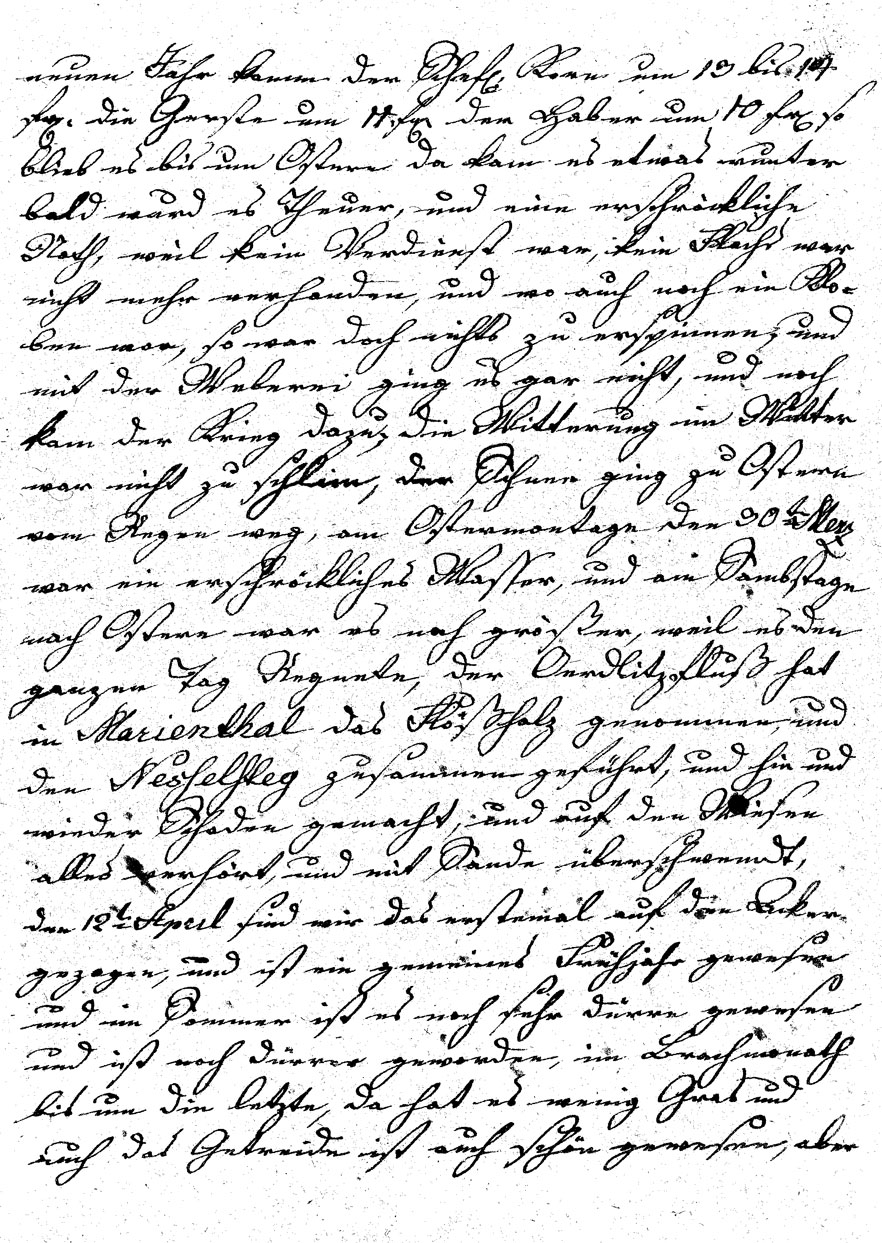 neuen Jahr kamm der Schefl. Korn um 13 bis 14
fr. die Gerste um 11 fr der Haber um 10 fr so
blieb es bis um Ostern da kam es etwas runter
bald ward es Theuer, und eine erschröckliche
Noth, weil kein Verdienst war, kein Flachs war
nicht mehr verhanden, und wo auch noch ein Klo-
ben war, so war doch nichts zu erspinnen, und
mit der Weberei ging es gar nicht, und noch
kam der Krieg dazu, die Witterung im Winter
war nicht zu schlim, der Schnee ging zu Ostern
vom Regen weg, am Ostermontage den 30ten Merz
war ein erschröckliches Wasser, und am Sambstage
nach Ostern war es noch größer, weil es den
ganzen Tag Regnete, der Oerdlitzfluß hat
in Marienthal das Flößholz genommen, und
den Nesselsteg zusammen geführt, und hin und
wieder Schaden gemacht, und auf den Wiesen
alles verhört, und mit Sande überschwemdt,
den 12t April sind wir das erstemal auf den Acker
gezogen, und ist ein gemeines Frühjahr gewesen
und im Sommer ist es noch sehr dürre gewesen
und ist noch dürrer geworden, im Brachmonath
bis um die letzte, da hat es wenig Gras und
auch das Getreide ist auch schön gewesen, aber